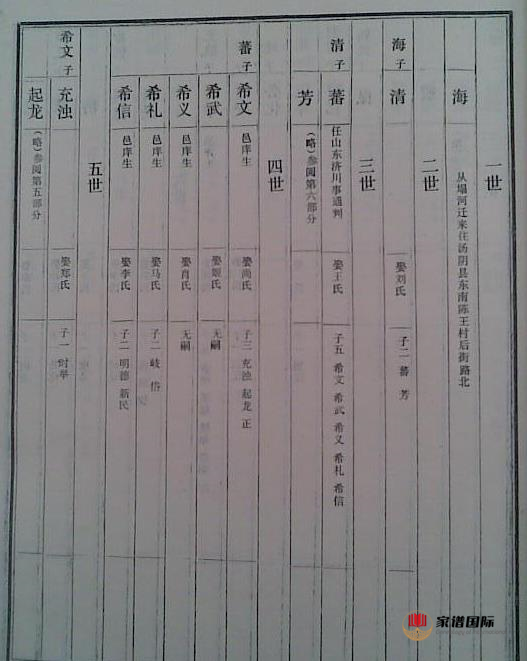 一世
海 从塌河迁来住汤阴县东南陈王村后街路北
二世
海子 清 娶刘氏 子二 蕃 芳
三世
清子 蕃 任山东济川事通判 娶王氏 子五 希文 希武 希义 希礼 希信
芳 (略)参阅第六部分
四世
蕃子 希文 邑庠生 娶尚氏 子三 充浊 起龙 正
希武 娶姬氏 无嗣
希义 邑庠生 娶肖氏 无嗣
希礼 邑庠生 娶马氏 子二 岐 俗
希信 邑庠生 娶李氏 子二 明德 新民
五世
希文子 充浊 娶郑氏 子一 时举
起龙 (略)参阅第五部分
家谱国际